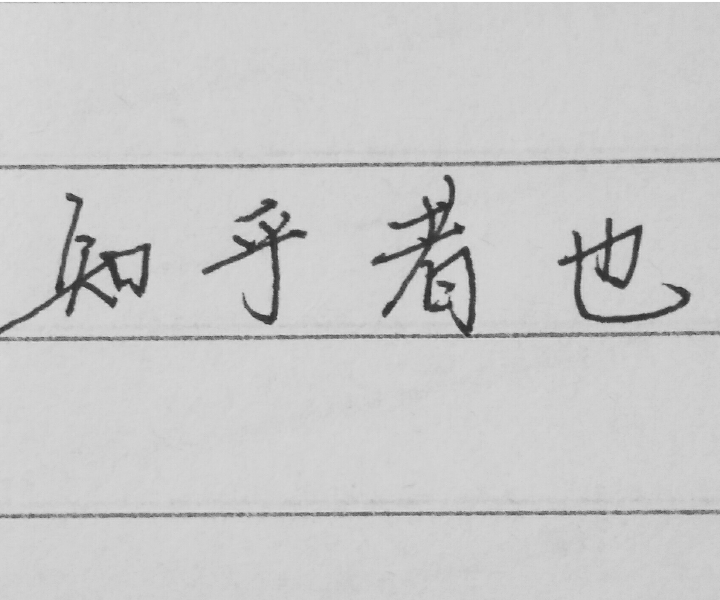 知乎者也